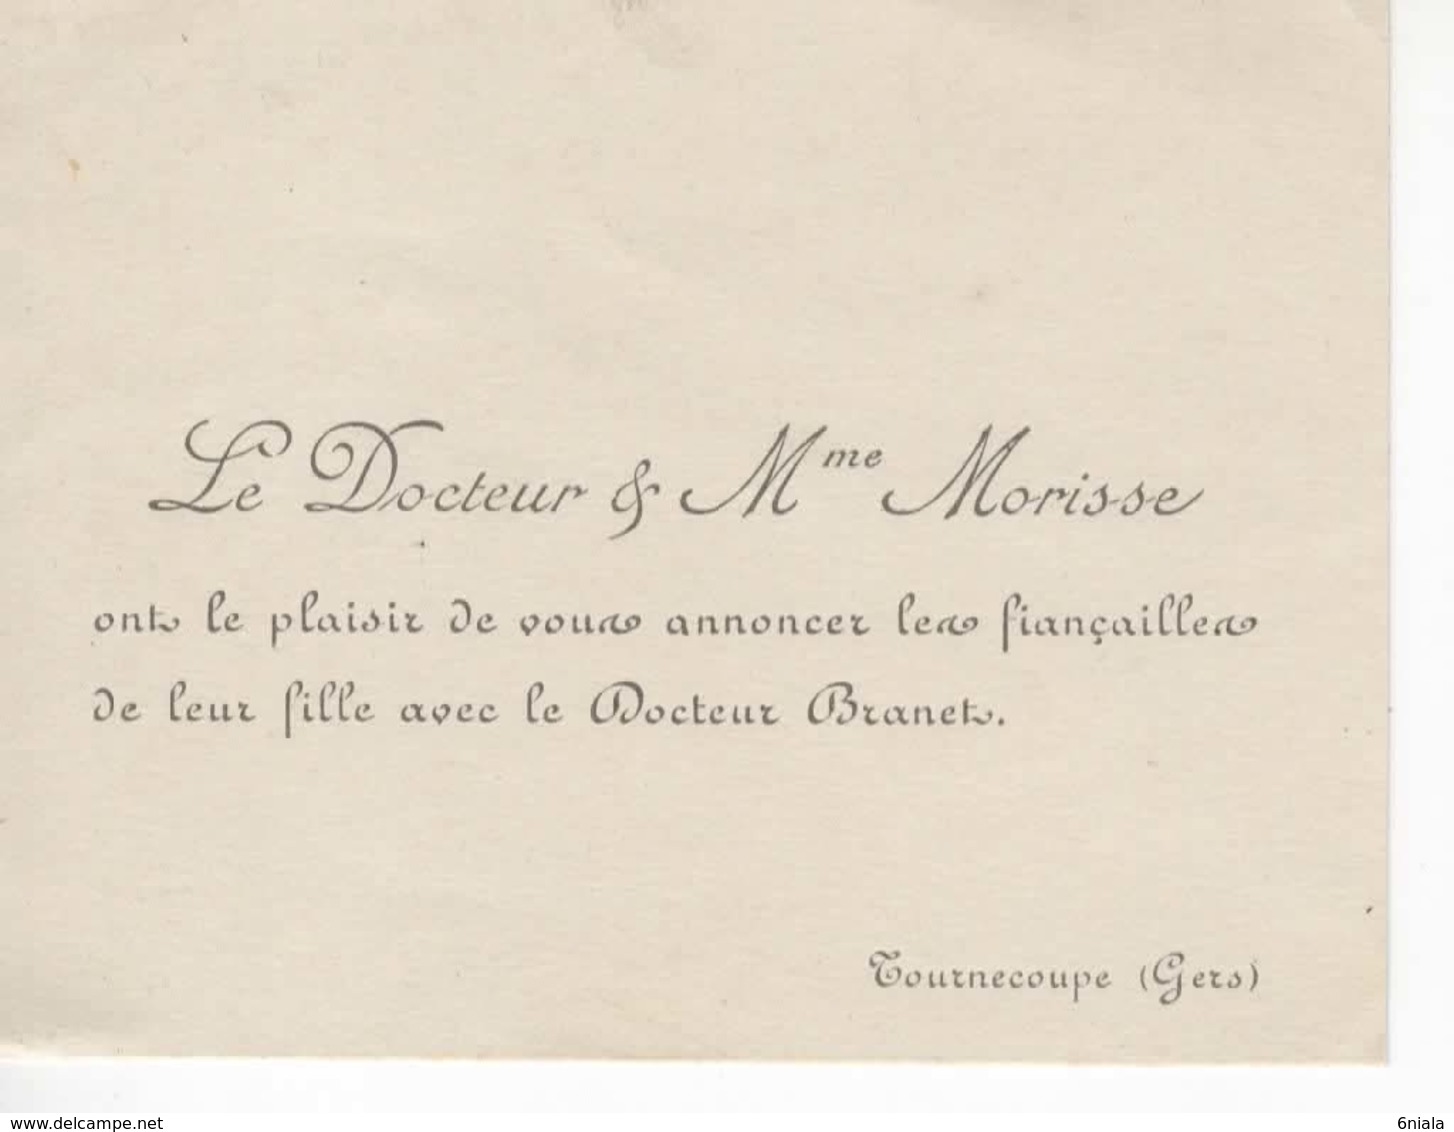 Le Docteur & Mme Morisse
ont le plaisir de vous annoncer les fiançailles
de leur fille avec le Docteur Branet.
Tournecoupe (Gers)
www.delcampe.net
6niala